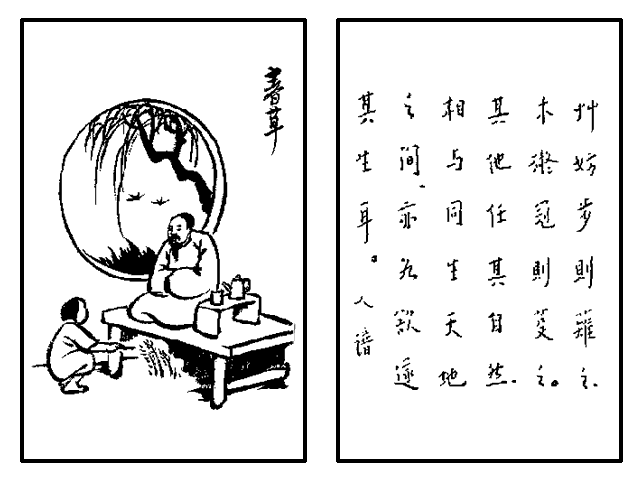 春草
艸妨步則薙之.
木礙冠則芟之。
其他任其自然.
相与同生天地
之間、亦各欲遂
其生耳。人譜